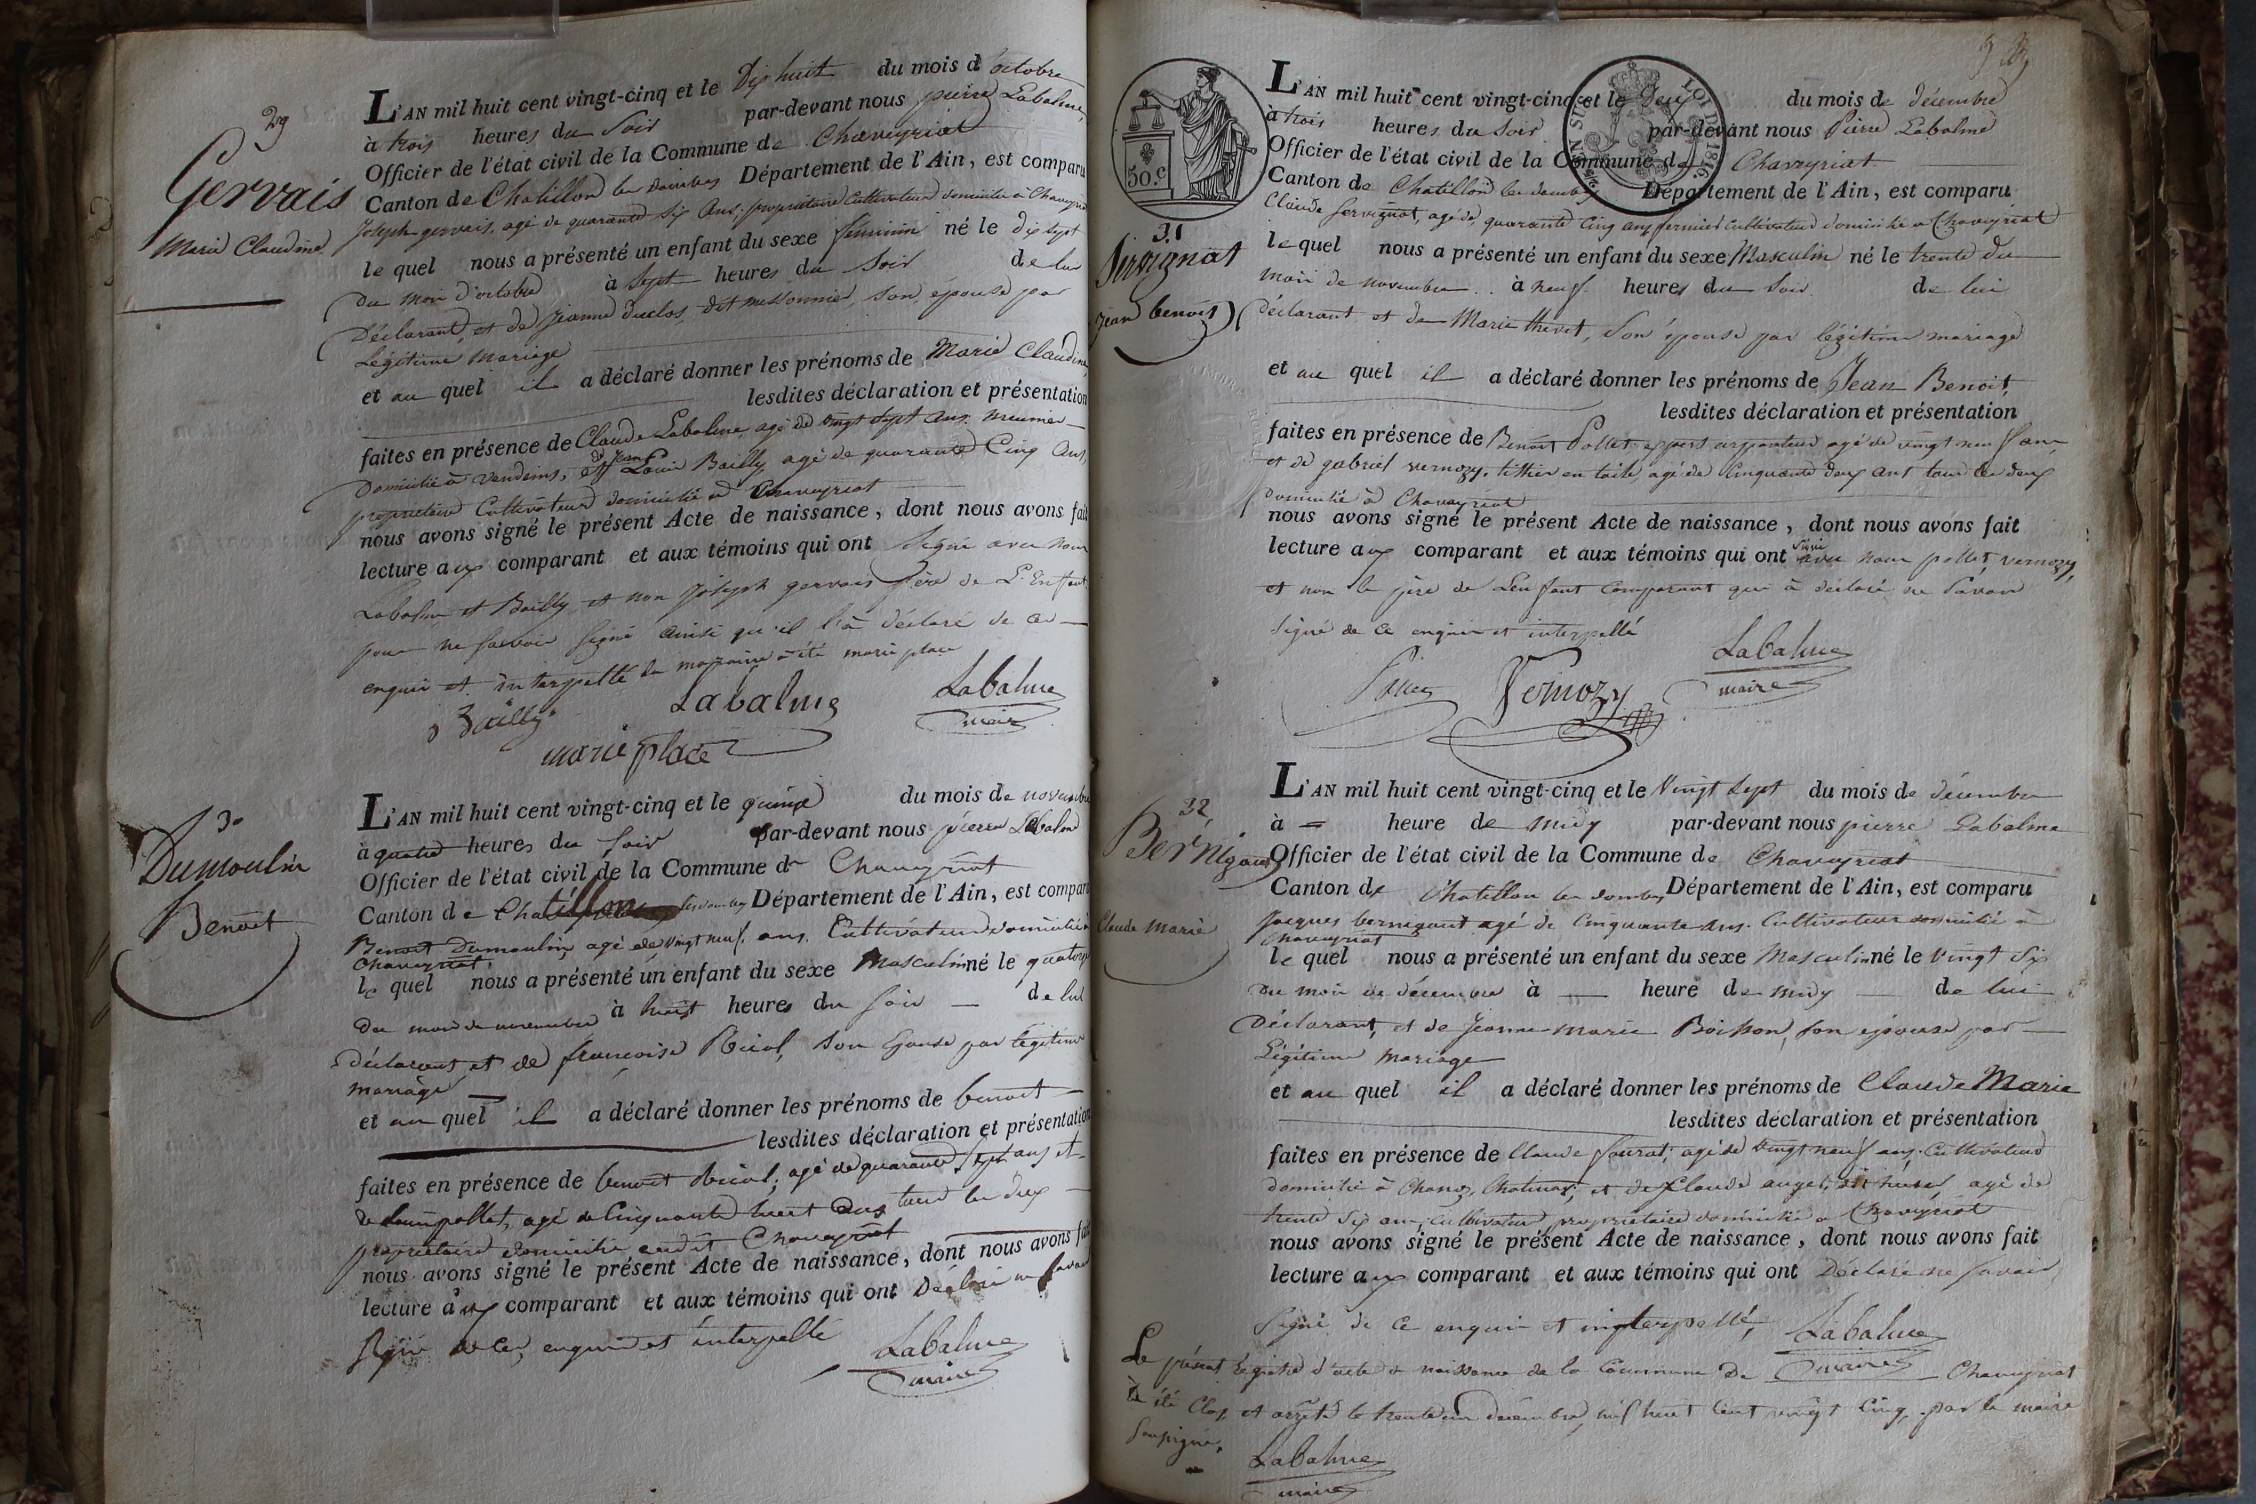 29
Gervais
Marie Claudine
L'AN mil huit cent vingt-cinq et le Dix huit du mois d'octobre
à trois heures du Soir par-devant nous pierre Labalme,
Officier de l'état civil de la Commune de Chaveyriat
Canton de Chatillon les dombes Département de l'Ain, est comparu
Joseph gervais, agé de quarante six ans, propriétaire Cultivateur domicilié à Chaveyriat
le quel nous a présenté un enfant du sexe féminin né le dix sept
du mois d'octobre à Sept heures du Soir de lui
Déclarant, et de jeanne duclos, dit messonnier, son épouse par
Légitime Mariage
et au quel il a déclaré donner les prénoms de Marie Claudine
lesdites déclaration et présentation
faites en présence de Claude Labalme agé de vingt sept ans, meunier
Domicilié à Vandeins, et Jean Louis Bailly agé de quarante Cinq Ans,
propriétaire Cultivateur domicilié à Chaveyriat
nous avons signé le présent Acte de naissance, dont nous avons fait
lecture aux comparant et aux témoins qui ont Signé avec nous
Labalme et Bailly et non joseph gervais père de L'Enfant
pour ne savoir signé ainsi qu'il l'a déclaré de ce
enquis et interpellé la marraine a été marie place
Bailly
Labalme
Labalme
maire
marie place
30
Dumoulin
Benoit
L'AN mil huit cent vingt-cinq et le quinze du mois de novembre
à quatre heures du Soir par-devant nous pierre Labalme
Officier de l'état civil de la Commune de Chaveyriat
Canton de Chatillon les dombes Département de l'Ain, est comparu
Benoit Dumoulin, agé de vingt neuf ans, Cultivateur domicilié à
Chaveyriat
le quel nous a présenté un enfant du sexe Masculin né le quatorze
du mois de novembre à huit heures du soir de lui
déclarant et de françoise son Epouse par légitime
mariage
et au quel il a déclaré donner les prénoms de benoit
lesdites déclaration et présentation
faites en présence de benoit agé de quarante sept ans et
de pollet, agé de Cinquante huit ans tous les deux
propriétaire domicilié audit Chaveyriat
nous avons signé le présent Acte de naissance, dont nous avons fait
lecture aux comparant et aux témoins qui ont Déclaré ne savoir
Signé de ce, enquis et interpellé
Labalme
maire
50.c
LOI DE 1816.
31
Sirvignat
jean benoit
L'AN mil huit cent vingt-cinq et le deux du mois de décembre
à trois heures du Soir par-devant nous Pierre Labalme
Officier de l'état civil de la Commune de Chaveyriat
Canton de Chatillon les dombes Département de l'Ain, est comparu
Claude Servignat, agé de quarante Cinq ans fermier Cultivateur domicilié à Chaveyriat
le quel nous a présenté un enfant du sexe Masculin né le trente du
mois de novembre à neuf heures du Soir de lui
déclarant et de Marie thevet, Son épouse par légitime mariage
et au quel il a déclaré donner les prénoms de Jean Benoit,
lesdites déclaration et présentation
faites en présence de Benoit Pollet expert arpenteur agé de vingt neuf ans,
et de gabriel vernozy, tissier en toile, agé de Cinquante deux ans tous les deux
domicilié à Chaveyriat
nous avons signé le présent Acte de naissance, dont nous avons fait
lecture aux comparant et aux témoins qui ont signé avec nous pollet, vernozy,
et non le père de Lenfant Comparant qui a déclaré ne Savoir
Signé de ce enquis et interpellé
Vernozy
Labalme
maire
32
Bernigaud
Claude Marie
L'AN mil huit cent vingt-cinq et le Vingt Sept du mois de décembre
à = heure de midy par-devant nous pierre Labalme
Officier de l'état civil de la Commune de Chaveyriat
Canton de Chatillon les dombes Département de l'Ain, est comparu
Jacques bernigaut agé de Cinquante ans, Cultivateur domicilié à
Chaveyriat
le quel nous a présenté un enfant du sexe Masculin né le vingt Six
du mois de décembre à — heure de midy — de lui
Déclarant, et de Jeanne Marie Boisson, son épouse par
Légitime Mariage
et au quel il a déclaré donner les prénoms de Claude Marie
lesdites déclaration et présentation
faites en présence de Claude agé de vingt neuf ans, Cultivateur
domicilié à Chanoz Chatenay, et de Claude agé de
trente Six ans, cultivateur propriétaire domicilié à Chaveyriat
nous avons signé le présent Acte de naissance, dont nous avons fait
lecture aux comparant et aux témoins qui ont Déclaré ne Savoir
Signé de ce enquis et interpellé,
Labalme
maire
Le présent Registre d'acte de naissance de la Commune De Chaveyriat
à été Clos, et arrêté le trente un décembre, mil huit Cent vingt Cinq, par le maire
Soussigné.
Labalme
maire